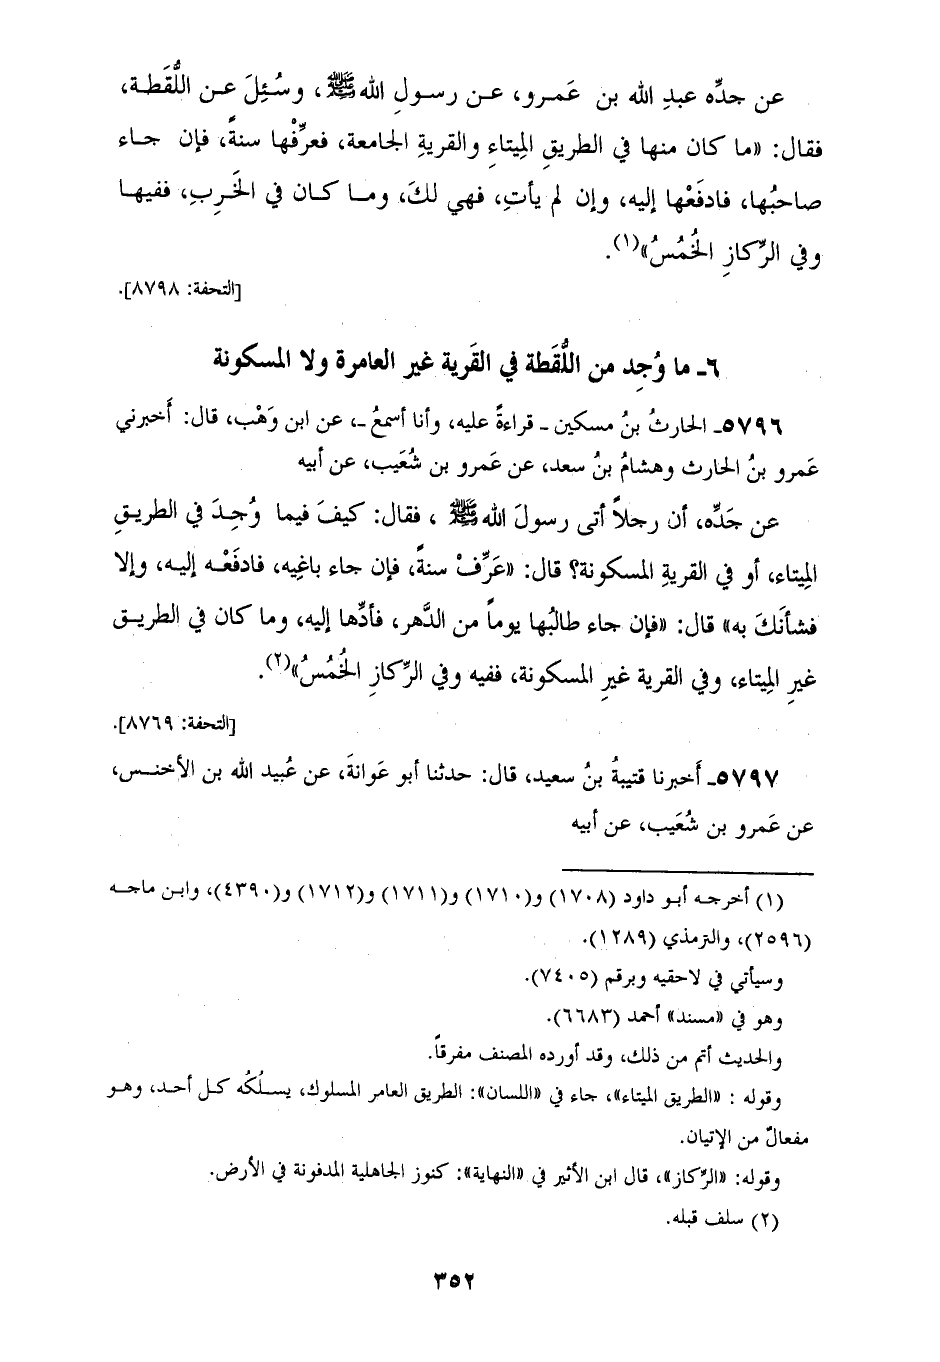 عن جدِّه عبدِ الله بن عَمرو، عن رسولِ الله ﷺ، وسُئِلَ عن اللُّقَطة،
فقال: «ما كان منها في الطريقِ المِيتاءِ والقريةِ الجامعة، فعرِّفْها سنةً، فإن جاء
صاحبُها، فادفَعْها إليه، وإن لم يأتِ، فهي لكَ، وما كان في الخَرِبِ، ففيها
وفي الرِّكازِ الخُمُسُ»(١).
[التحفة: ٨٧٩٨].
٦- ما وُجِد من اللُّقَطة في القَرية غير العامرة ولا المسكونة
٥٧٩٦- الحارثُ بنُ مسكين - قراءةً عليه، وأنا أسمعُ -، عن ابن وَهْب، قال: أَخبرني
عَمرو بنُ الحارث وهشامُ بنُ سعد، عن عَمرو بن شُعَيب، عن أبيه
عن جَدِّه، أن رجلاً أتى رسولَ الله ﷺ، فقال: كيفَ فيما وُجِدَ في الطريقِ
المِيتاء، أو في القريةِ المسكونة؟ قال: «عَرِّفْ سنةً، فإن جاء باغِيه، فادفَعْه إليه، وإلا
فشأنَكَ به» قال: «فإن جاء طالبُها يوماً من الدَّهر، فأدِّها إليه، وما كان في الطريق
غيرِ المِيتاء، وفي القرية غيرِ المسكونة، ففيه وفي الرِّكازِ الخُمُسُ»(٢).
[التحفة: ٨٧٦٩].
٥٧٩٧- أَخبرنا قتيبةُ بنُ سعيد، قال: حدثنا أبو عَوانةَ، عن عُبيد الله بن الأخنس،
عن عَمرو بن شُعَيب، عن أبيه
(١) أخرجه أبو داود (١٧٠٨) و(١٧١٠) و(١٧١١) و(١٧١٢) و(٤٣٩٠)، وابن ماجه
(٢٥٩٦)، والترمذي (١٢٨٩).
وسيأتي في لاحقيه وبرقم (٧٤٠٥).
وهو في «مسند» أحمد (٦٦٨٣).
والحديث أتم من ذلك، وقد أورده المصنف مفرقاً.
وقوله : «الطريق الميتاء»، جاء في «اللسان»: الطريق العامر المسلوك، يسلُكُه كل أحد، وهو
مفعالٌ من الإتيان.
وقوله: «الرِّكاز»، قال ابن الأثير في «النهاية»: كنوز الجاهلية المدفونة في الأرض.
(٢) سلف قبله.
٣٥٢